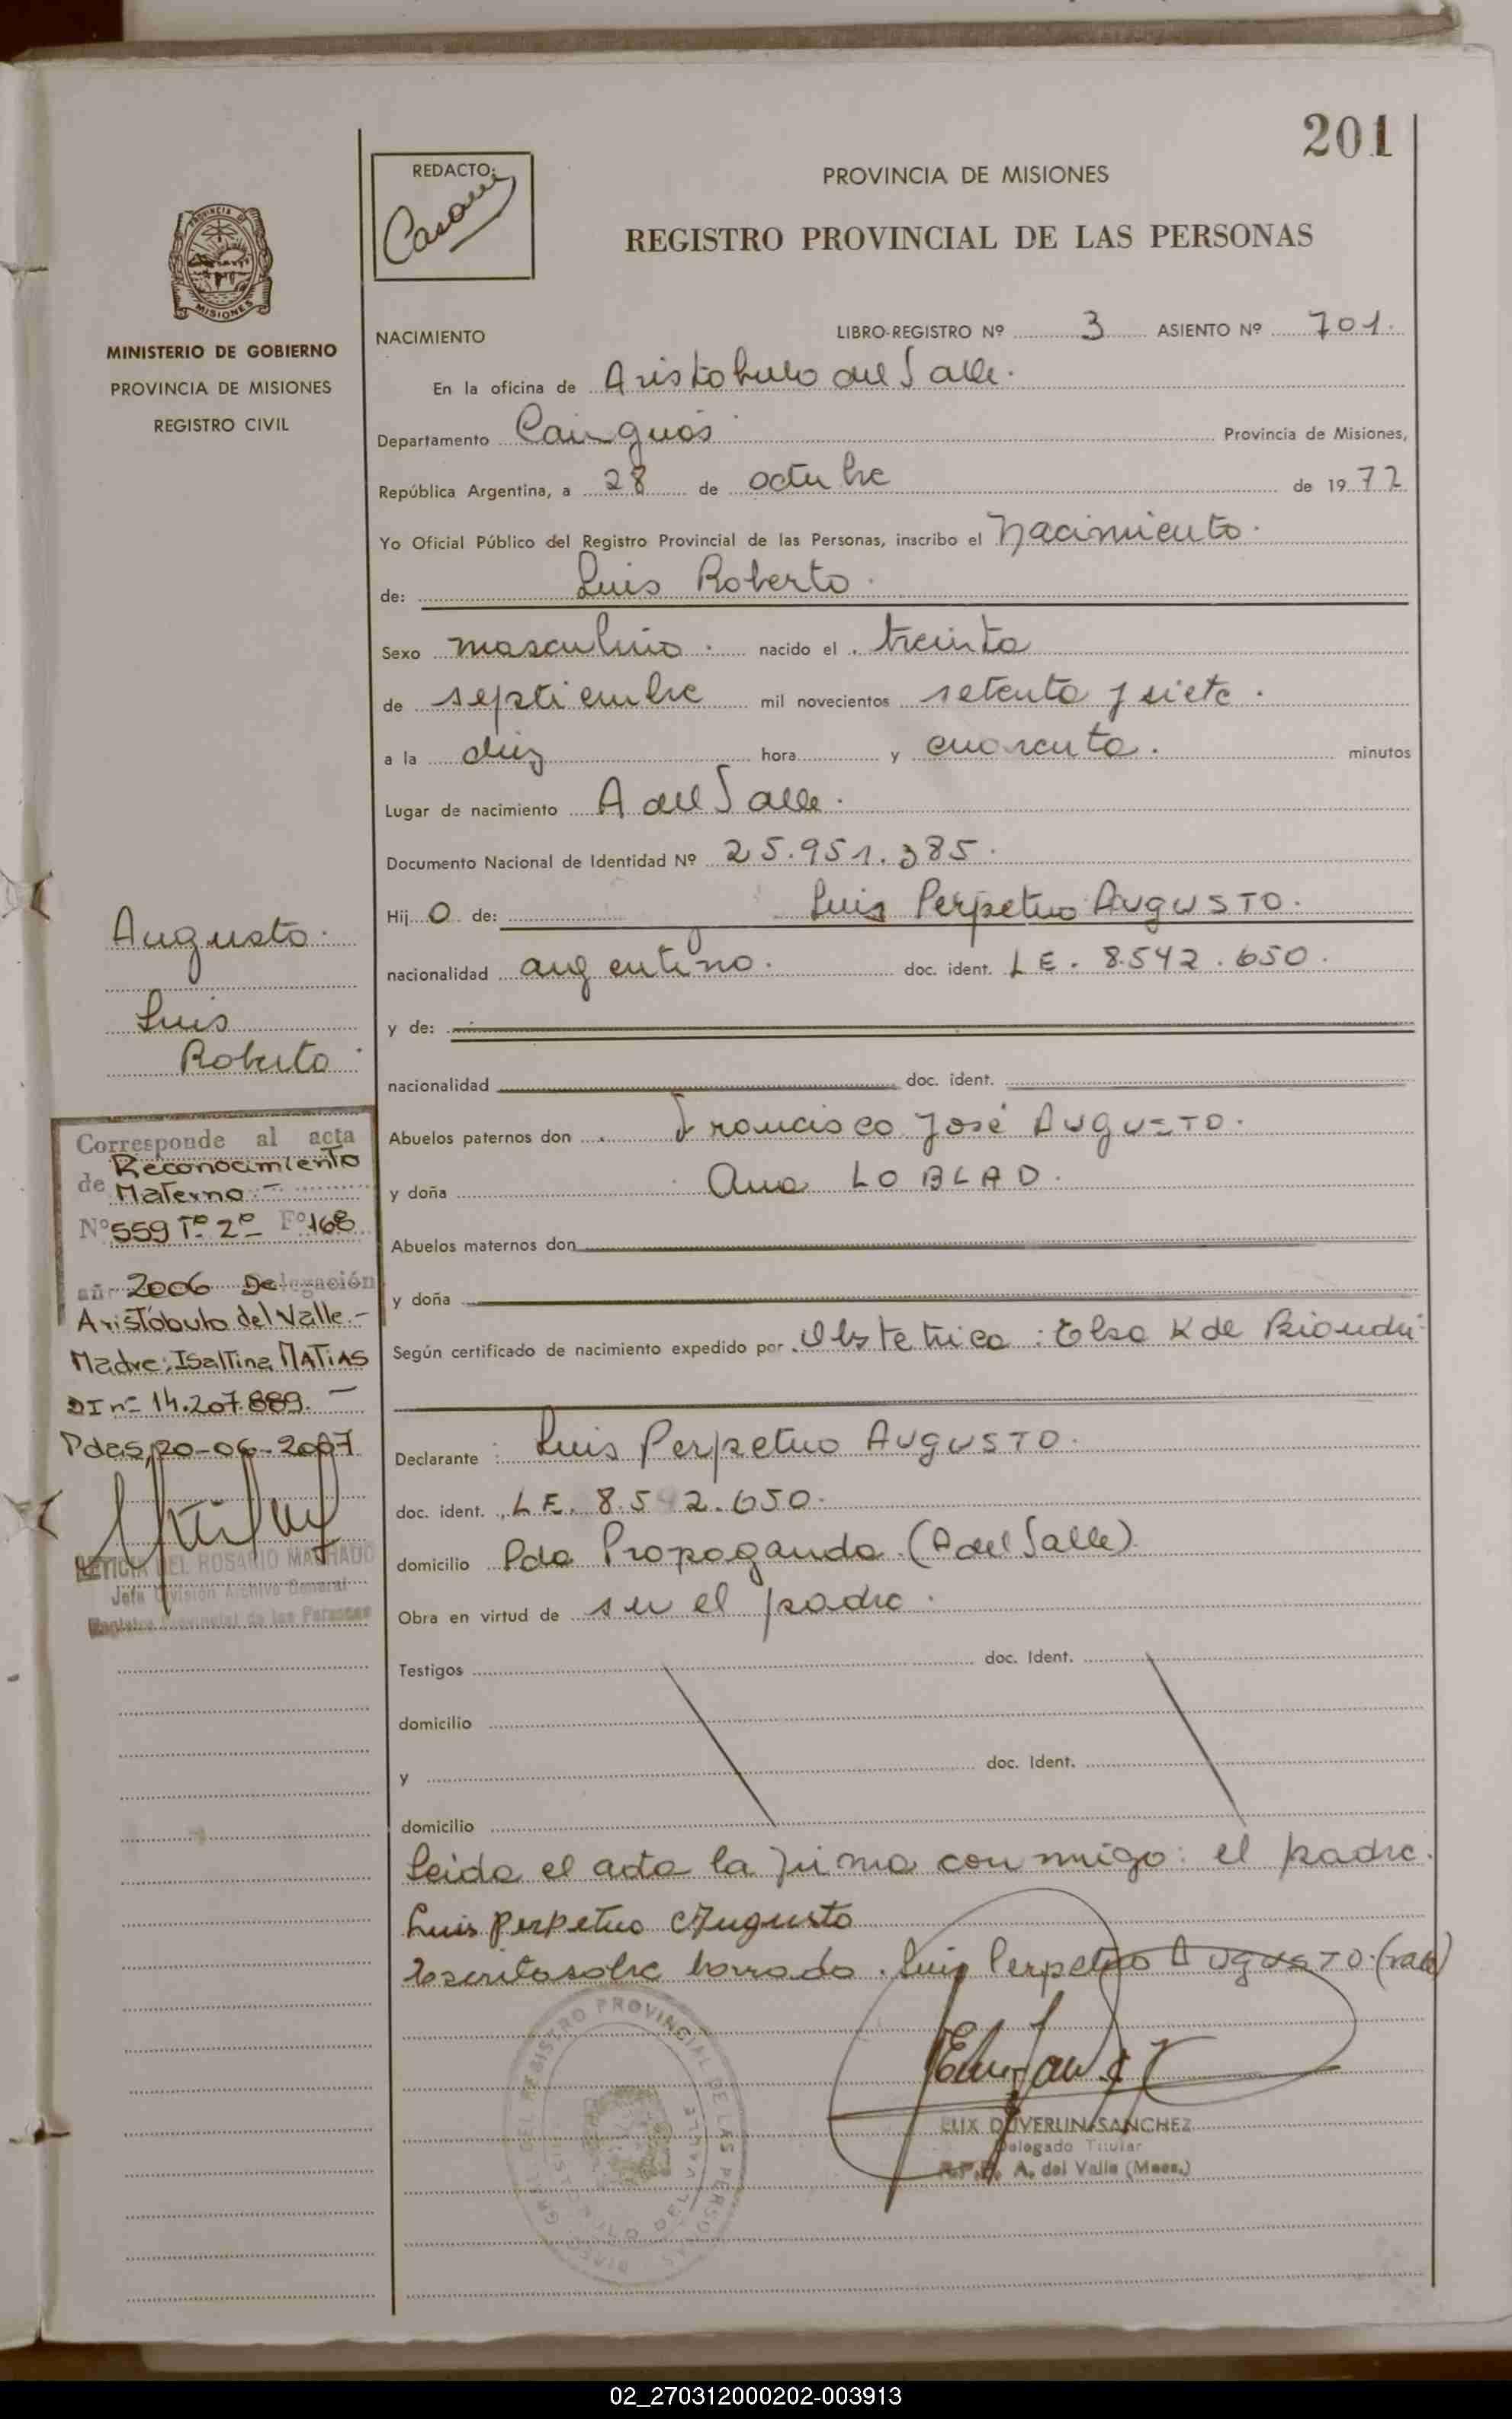 201
REDACTO:
PROVINCIA DE MISIONES
REGISTRO PROVINCIAL DE LAS PERSONAS
MINISTERIO DE GOBIERNO
PROVINCIA DE MISIONES
REGISTRO CIVIL
NACIMIENTO LIBRO-REGISTRO Nº 3 ASIENTO Nº 701.
En la oficina de Aristobulo del Valle.
Departamento Cainguás Provincia de Misiones,
República Argentina, a 28 de octubre de 1977
Yo Oficial Público del Registro Provincial de las Personas, inscribo el Nacimiento.
de: Luis Roberto.
Sexo masculino. nacido el treinta
de septiembre mil novecientos setenta y siete.
a la diez hora y cuarenta. minutos
Lugar de nacimiento A del Valle.
Documento Nacional de Identidad Nº 25.951.385.
Hij o de: Luis Perpetuo AUGUSTO.
nacionalidad argentino. doc. ident. LE. 8.542.650.
y de:
nacionalidad doc. ident.
Abuelos paternos don Francisco José AUGUSTO.
y doña Ana LOBLAD.
Abuelos maternos don
y doña
Según certificado de nacimiento expedido por Obstetrica: Elsa K de Biondi
Declarante: Luis Perpetuo AUGUSTO.
doc. ident. LE. 8.542.650.
domicilio Pda Propaganda. (A del Valle)
Obra en virtud de ser el padre.
Testigos doc. Ident.
domicilio
y doc. Ident.
domicilio
Leida el acta la firma conmigo: el padre.
Luis perpetuo Augusto
Escrito sobre borrado. Luis Perpetuo AUGUSTO. (vale)
DUVERLIN SANCHEZ
Delegado Titular
A. del Valle (Mnes.)
Augusto.
Luis
Roberto.
Corresponde al acta
de Reconocimiento
Materno.-
Nº 559 Tº 2º Fº 168
año 2006 Delegación
Aristóbulo del Valle.-
Madre: Isaltina MATIAS
DI nº 14.207.889.-
Pdas, 20-06-2007
LETICIA DEL ROSARIO MACHADO
Jefa División Archivo General
Registro Provincial de las Personas
02_270312000202-003913